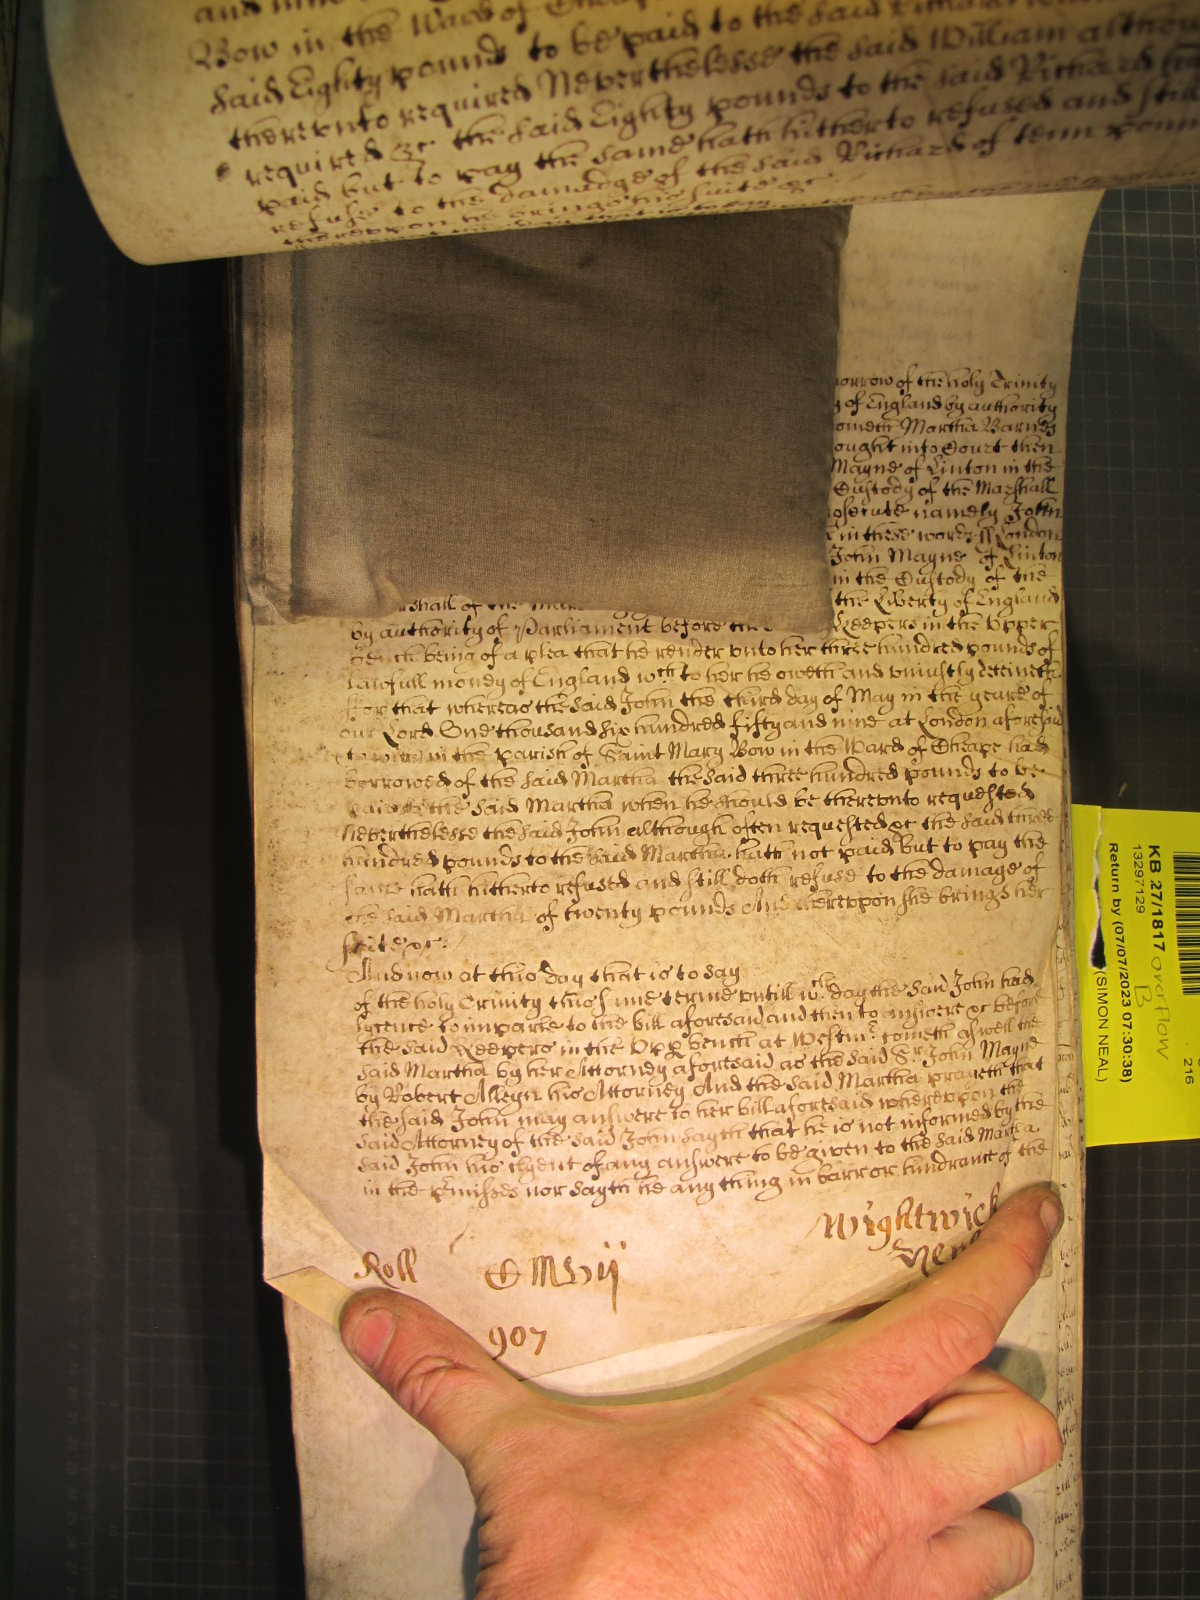 Bow in the Ward of Cheape
said Eighty pounds to be paid to the said Richard
therevnto required Neverthelesse the said William althou
required &c the said Eighty pounds to the said Richard
paid but to pay the same hath hitherto refused and still
refuse to the damadge of the said Richard of tenn poun
therevpon he brings his suite &c
orrow of the holy Trinity
of England by authority
ometh Martha Barnes
ought into Court then
Mayne of Linton in the
Custody of the Marshall
osecute namely John
in these words ss London
John Mayne of Linton
in the Custody of the
the Liberty of England
rshall of the Mar
by authority of Parliament before the Keepers in the Vpper
Bench being of a plea that he render vnto her three hundred pounds of
lawfull money of England wch to her he oweth and vniustly deteineth
For that whereas the said John the third day of May in the yeare of
our Lord One thousand six hundred fifty and nine at London aforesaid
to witt in the parish of Saint Mary Bow in the Ward of Cheape had
borrowed of the said Martha the said three hundred pounds to be
paid to the said Martha when he should be therevnto requested
Neverthelesse the said John although often requested &c the said three
hundred pounds to the said Martha hath not paid but to pay the
same hath hitherto refused and still doth refuse to the damage of
the said Martha of twenty pounds And therevpon she brings her
suite &c
And now at this day that is to say
of the holy Trinity this same terme vntill wch day the said John had
lycence to imparle to the bill aforesaid and then to answere &c before
the said Keepers in the Vpp bench at Westmr cometh aswell the
said Martha by her Attorney aforesaid as the said Sr John Mayne
by Robert Alleyn his Attorney And the said Martha prayeth that
the said John may answere to her bill aforesaid wherevpon the
said Attorney of the said John sayth that he is not informed by the
said John his clyent of any answere to be given to the said Martha
in the pmisses nor sayth he any thing in barr or hindrance of the
Wightwick
Roll
907
KB 27/1817 overflow
B
13297129
Return by (07/07/2023 07:30:38)
(SIMON NEAL)
216